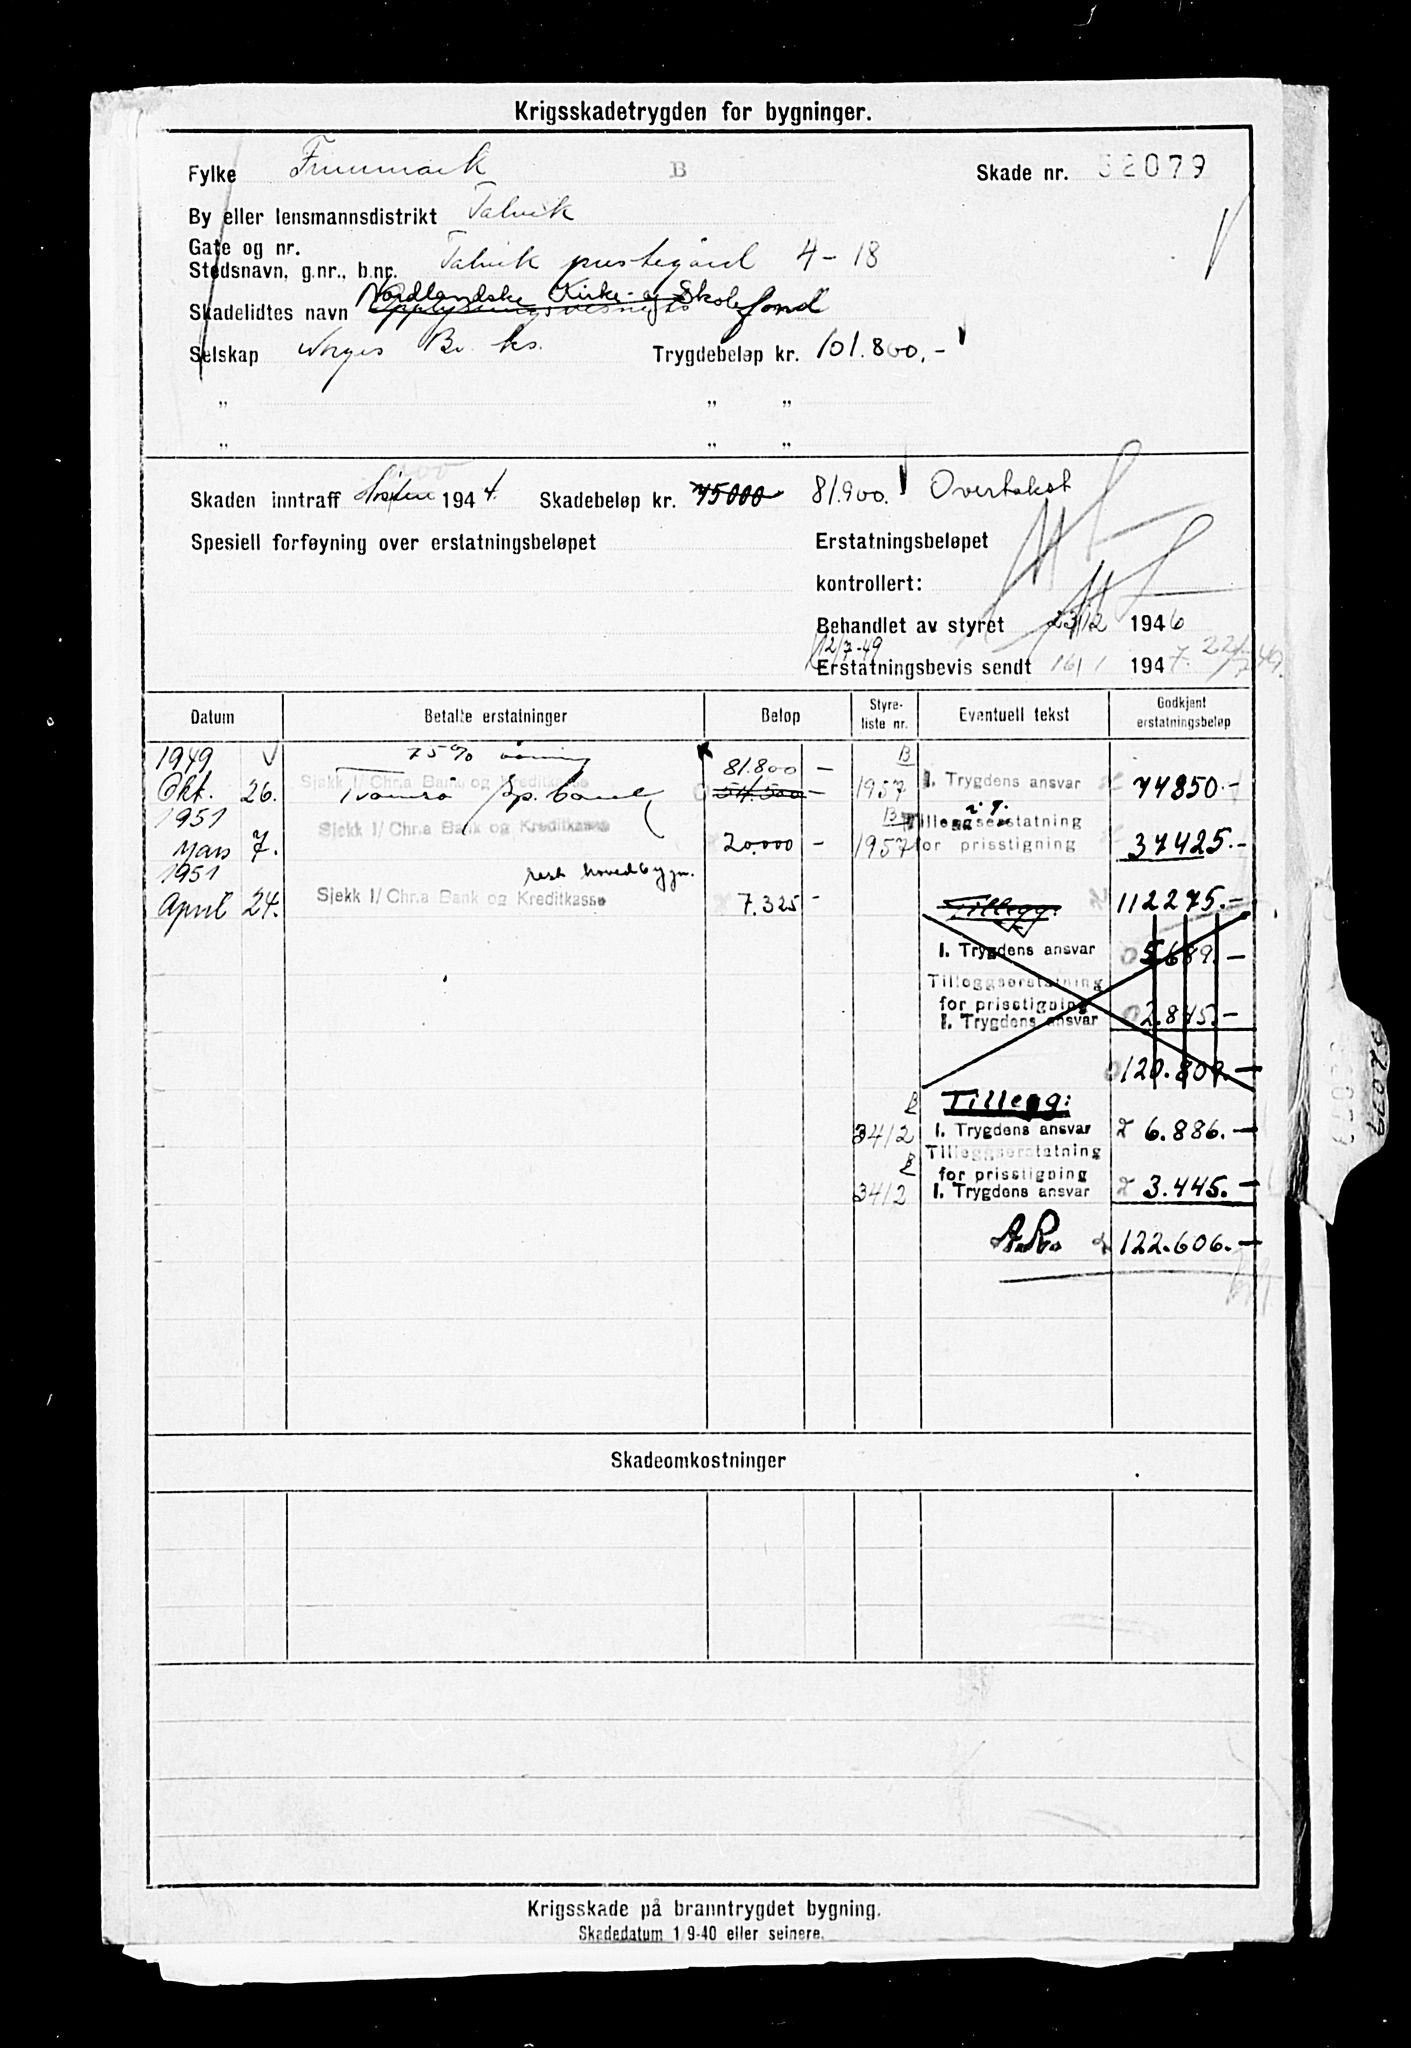 Krigsskadetrygden for bygninger.
Fylke Finnmark B Skade nr. 52079
By eller lensmannsdistrikt Talvik
Gate og nr.
Stedsnavn, g.nr., b.nr. Talvik prestegård 4-18
Nordlandske Kirke- og Skole
Skadelidtes navn Opplysningsvesenets fond
Selskap Norges Br. ks. Trygdebeløp kr. 101.800,-
" " "
" " "
Skaden inntraff Høsten 1944. Skadebeløp kr. 75000 81.900. Overtakst
Spesiell forføyning over erstatningsbeløpet Erstatningsbeløpet
kontrollert:
Behandlet av styret 23/12 1946
12/7-49
Erstatningsbevis sendt 16/1 1947. 22/7 49.
Datum Betalte erstatninger Beløp Styreliste nr. Eventuell tekst Godkjent erstatningsbeløp
1949 75% 81.800 - B
Sjekk 1/ Chr.a Bank og Kreditkasse
Okt. 26. Tromsø Sp. bank 54.500 - 1957 1. Trygdens ansvar 74850.-
1951 Sjekk 1/ Chr.a Bank og Kreditkasse B Tilleggserstatning
Mars 7. 20.000 - 1957 for prisstigning 37425.-
1951 rest hovedbygn.
April 24. Sjekk 1/ Chr.a Bank og Kreditkasse 7.325 - Tillegg: 112275.-
1. Trygdens ansvar 5.689.-
Tilleggserstatning
for prisstigning
1. Trygdens ansvar 2.845.-
120.809.-
B Tillegg:
3412 1. Trygdens ansvar 6.886.-
Tilleggserstatning
B for prisstigning
3412 1. Trygdens ansvar 3.445.-
122.606.-
Skadeomkostninger
Krigsskade på branntrygdet bygning.
Skadedatum 1/9-40 eller seinere.
52079